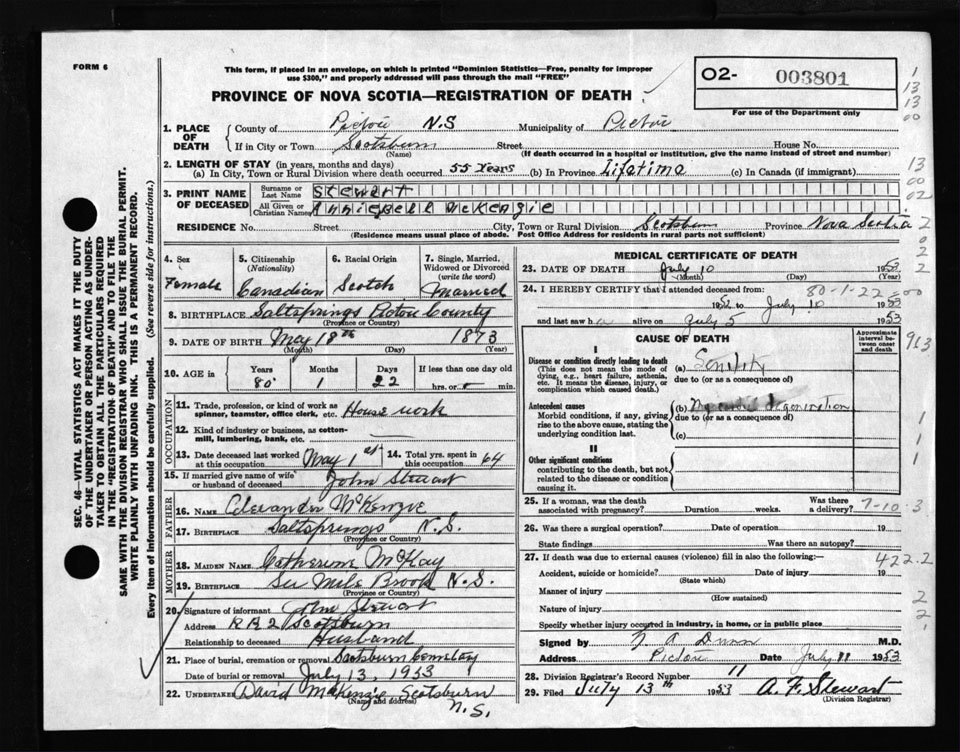 FORM 6
This form, if placed in an envelope, on which is printed "Dominion Statistics—Free, penalty for improper
use $300," and properly addressed will pass through the mail "FREE"
O2- 003801
For use of the Department only
PROVINCE OF NOVA SCOTIA—REGISTRATION OF DEATH
1. PLACE OF DEATH
County of Pictou N.S Municipality of Pictou
If in City or Town Scotsburn Street House No.
(Name) (If death occurred in a hospital or institution, give the name instead of street and number)
2. LENGTH OF STAY (in years, months and days)
(a) In City, Town or Rural Division where death occurred 55 Years (b) In Province Lifetime (c) In Canada (if immigrant)
3. PRINT NAME OF DECEASED
Surname or Last Name Stewart
All Given or Christian Names Anniebell McKenzie
RESIDENCE No. Street City, Town or Rural Division Scotsburn Province Nova Scotia
(Residence means usual place of abode. Post Office Address for residents in rural parts not sufficient)
4. Sex
Female
5. Citizenship
(Nationality)
Canadian
6. Racial Origin
Scotch
7. Single, Married, Widowed or Divorced
(write the word)
Married
8. BIRTHPLACE Saltsprings Pictou County
(Province or Country)
9. DATE OF BIRTH May 18th 1873
(Month) (Day) (Year)
10. AGE in Years Months Days If less than one day
80 1 22 hrs. or min.
OCCUPATION
11. Trade, profession, or kind of work as
spinner, teamster, office clerk, etc. House work
12. Kind of industry or business, as cotton-
mill, lumbering, bank, etc.
13. Date deceased last worked
at this occupation May 1st
14. Total yrs. spent in
this occupation 64
15. If married give name of wife
or husband of deceased John Stewart
FATHER
16. NAME Alexander McKenzie
17. BIRTHPLACE Saltsprings N.S.
(Province or Country)
MOTHER
18. MAIDEN NAME Catherine McKay
19. BIRTHPLACE Six Mile Brook N.S.
(Province or Country)
20. Signature of informant John Stewart
Address R R 2 Scotsburn
Relationship to deceased Husband
21. Place of burial, cremation or removal Scotsburn Cemetery
Date of burial or removal July 13, 1953
22. UNDERTAKER David McKenzie Scotsburn
(Name and address) N.S.
MEDICAL CERTIFICATE OF DEATH
23. DATE OF DEATH July 10 1953
(Month) (Day) (Year)
24. I HEREBY CERTIFY that I attended deceased from: 80-1-22
1952 to July 10 1953
and last saw h alive on July 5 1953
CAUSE OF DEATH
Approximate interval between onset and death
I
Disease or condition directly leading to death
(This does not mean the mode of
dying, e.g., heart failure, asthenia,
etc. It means the disease, injury, or
complication which caused death.)
(a) Senility
due to (or as a consequence of)
Antecedent causes
Morbid conditions, if any, giving
rise to the above cause, stating the
underlying condition last.
(b) degeneration
due to (or as a consequence of)
(c)
II
Other significant conditions
contributing to the death, but not
related to the disease or condition
causing it.
25. If a woman, was the death
associated with pregnancy? Duration weeks. Was there
a delivery? 7-10-3
26. Was there a surgical operation? Date of operation 19
State findings Was there an autopsy?
27. If death was due to external causes (violence) fill in also the following:—
422.2
Accident, suicide or homicide? Date of injury 19
(State which)
Manner of injury
(How sustained)
Nature of injury
Specify whether injury occurred in industry, in home, or in public place
Signed by M.D.
Address Pictou Date July 11 1953
28. Division Registrar's Record Number 11
29. Filed July 13th 1953 A. F. Stewart
(Division Registrar)
SEC. 46—VITAL STATISTICS ACT MAKES IT THE DUTY
OF THE UNDERTAKER OR PERSON ACTING AS UNDER-
TAKER TO OBTAIN ALL THE PARTICULARS REQUIRED
IN THE "REGISTRATION OF DEATH" AND TO FILE THE
SAME WITH THE DIVISION REGISTRAR WHO SHALL ISSUE THE BURIAL PERMIT.
WRITE PLAINLY WITH UNFADING INK. THIS IS A PERMANENT RECORD.
Every item of information should be carefully supplied. (See reverse side for instructions.)
1
13
13
00
13
00
02
2
0
2
2
00
913
1
1
1
2
2